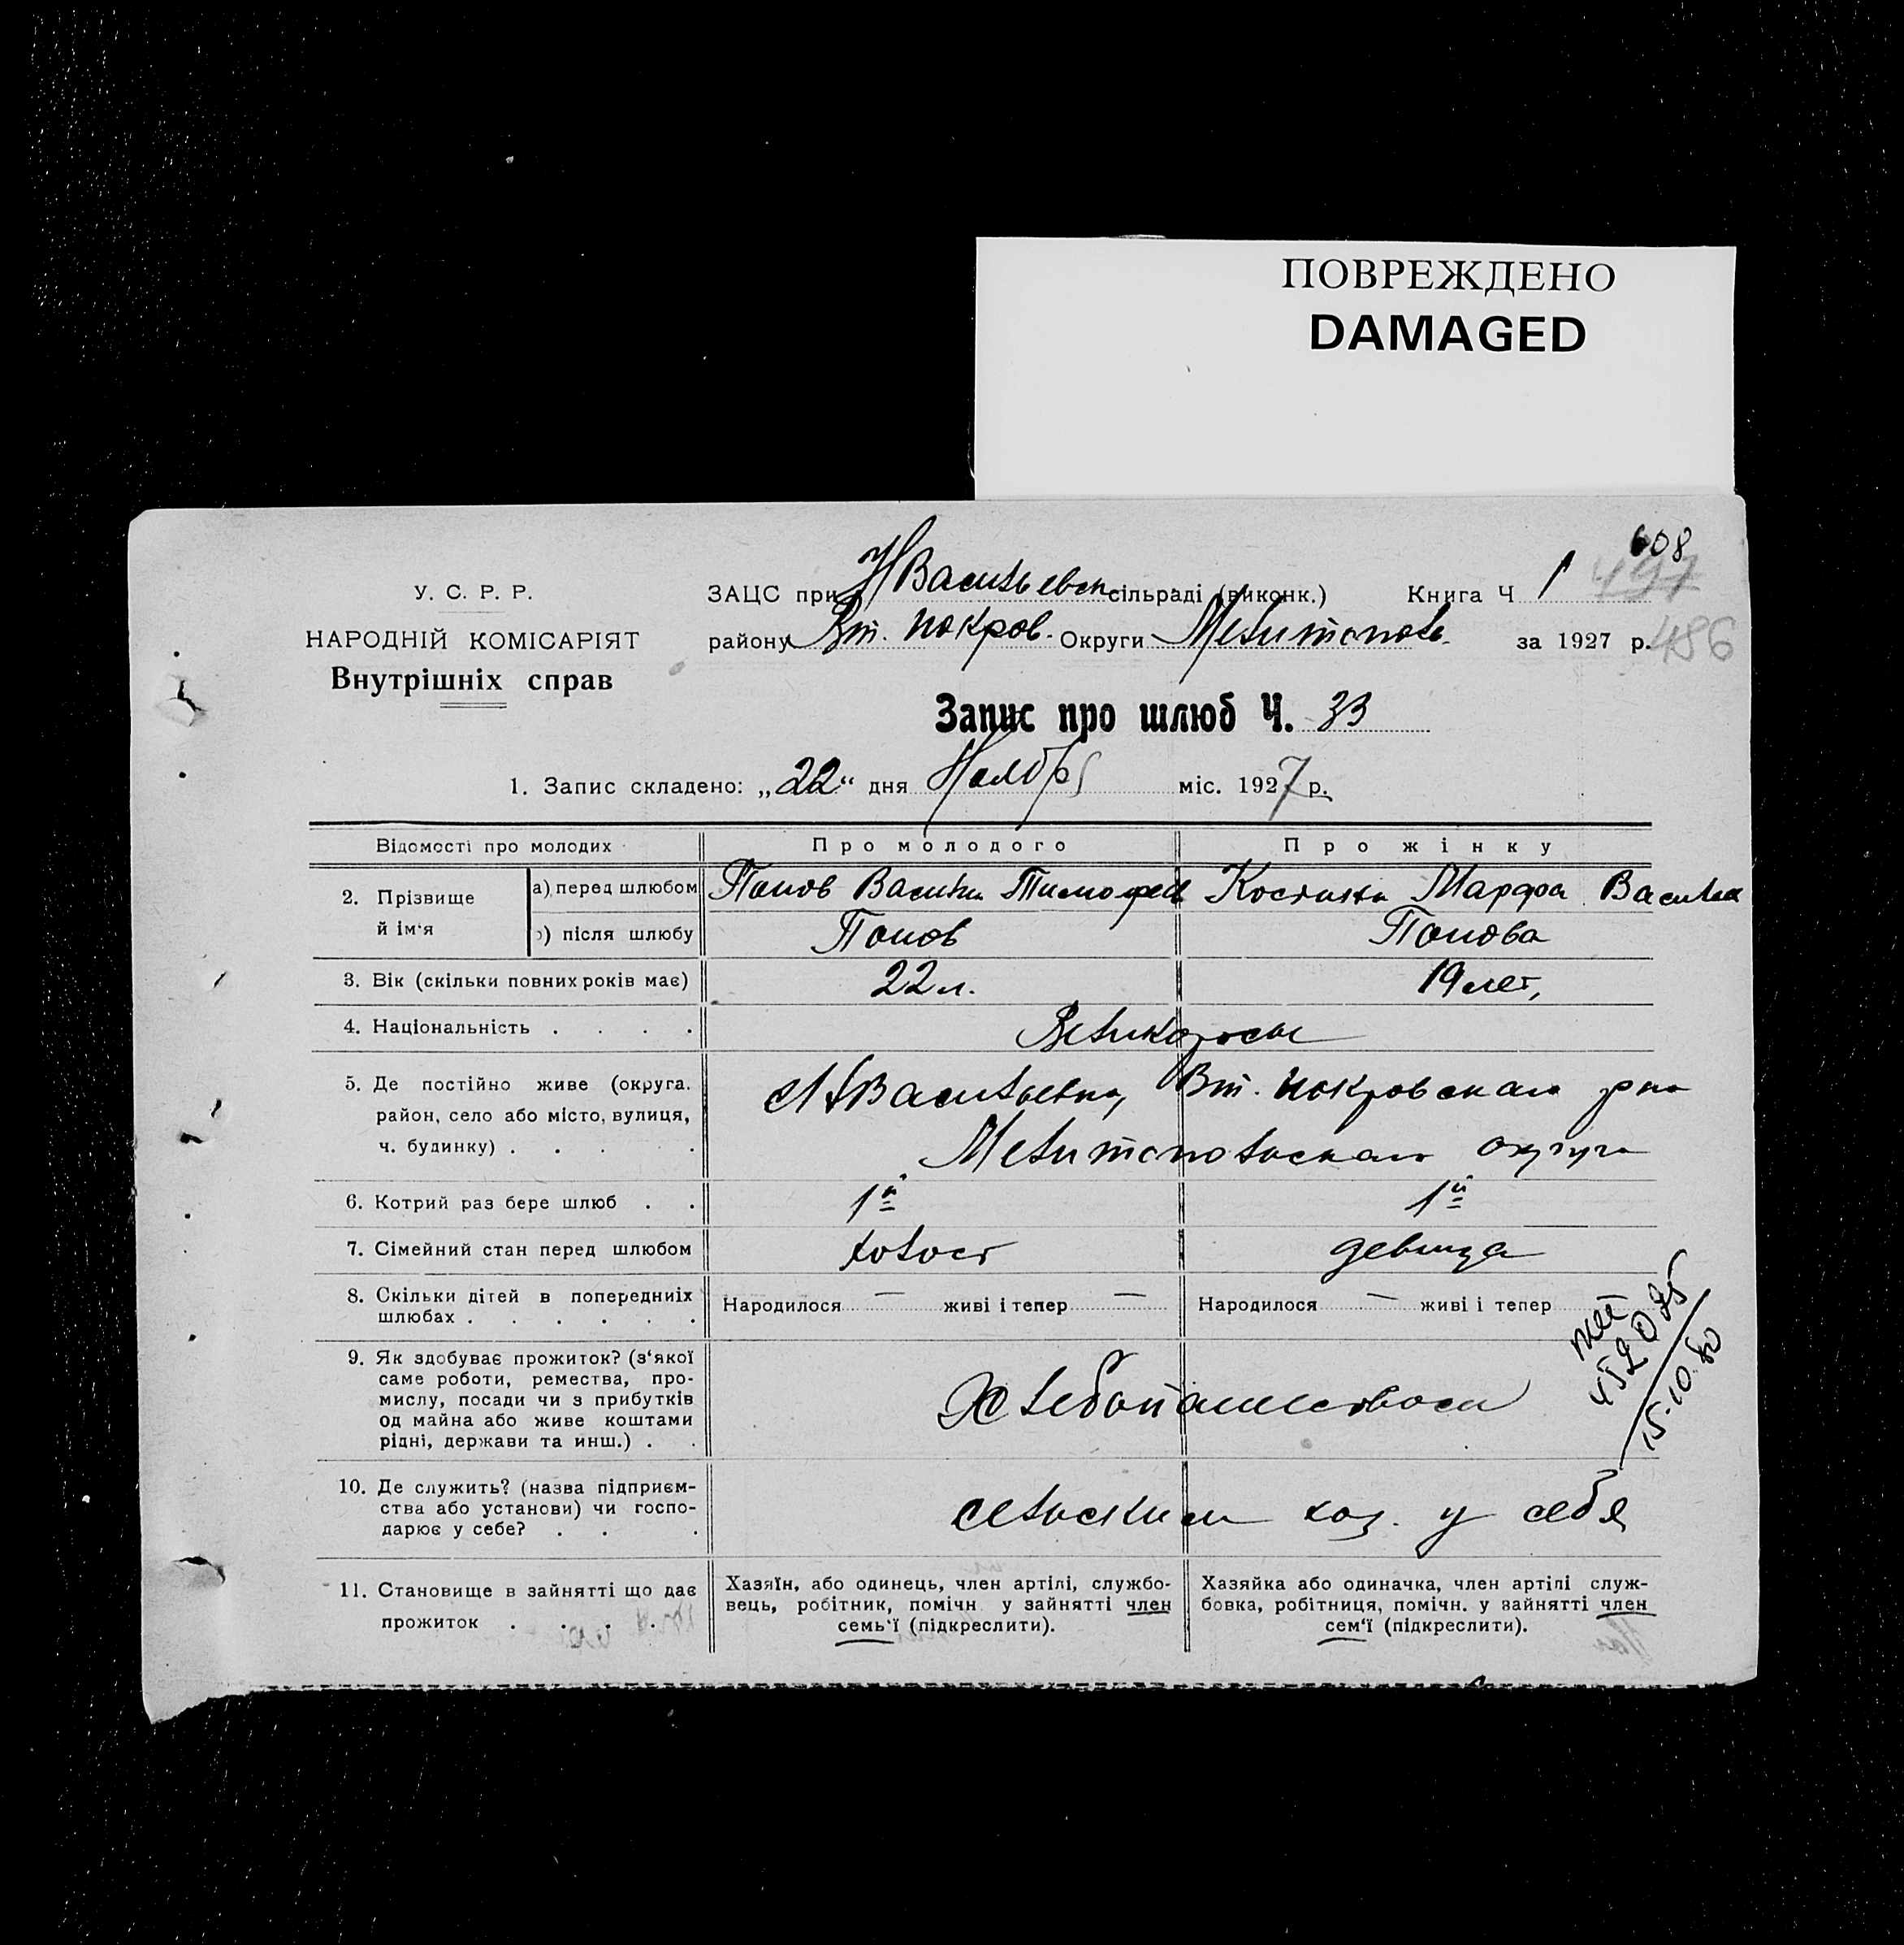 ПОВРЕЖДЕНО
DAMAGED
608
У. С. Р. Р.
ЗАЦС при Н Васильевск сільраді (виконк.) Книга Ч 1 497
НАРОДНІЙ КОМІСАРІЯТ
району Вт. Покров. Округи Мелитополь. за 1927 р. 486
Внутрішніх справ
Запис про шлюб Ч. 33
1. Запис складено: „22“ дня Ноября міс. 1927 р.
Відомості про молодих Про молодого Про жінку
2. Прізвище й ім'я
а) перед шлюбом Попов Василий Тимофеев Костина Марфа Василье
б) після шлюбу Попов Попова
3. Вік (скільки повних років має) 22 л. 19 лет,
4. Національність . . . . Великороссы
5. Де постійно живе (округа, Васильевка, Вт. Покровского р на
район, село або місто, вулиця,
ч. будинку) . . . . Мелитопольского округа
6. Котрий раз бере шлюб . . 1й 1й
7. Сімейний стан перед шлюбом холост девица
8. Скільки дітей в попередніх Народилося — живі і тепер — Народилося — живі і тепер
шлюбах . . . . . .
9. Як здобуває прожиток? (з'якої
саме роботи, ремества, про-
мислу, посади чи з прибутків Хлебопашеством
од майна або живе коштами
рідні, держави та инш.) . .
452075
15.10.80
10. Де служить? (назва підприєм-
ства або установи) чи госпо- сельским хоз. у себя
дарює у себе? . . .
11. Становище в зайнятті що дає
прожиток . . . .
Хазяїн, або одинець, член артілі, службо-
вець, робітник, помічн. у зайнятті член
семь'ї (підкреслити).
Хазяйка або одиначка, член артілі служ-
бовка, робітниця, помічн. у зайнятті член
сем'ї (підкреслити).